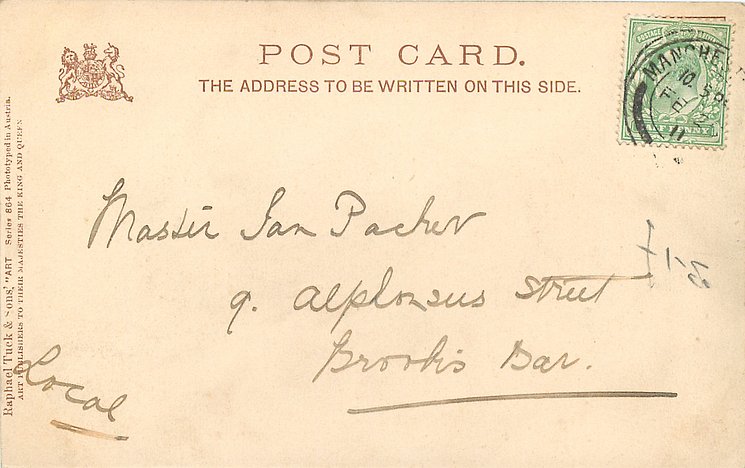 POST CARD.
THE ADDRESS TO BE WRITTEN ON THIS SIDE.
MANCHEST
DE 2
11
PENNY
Master Ian Packer
9. Alphonsus Street
Brooks's Bar.
Local
Raphael Tuck & Sons, "ART Series 864 Phototyped in Austria.
ART PUBLISHERS TO THEIR MAJESTIES THE KING AND QUEEN